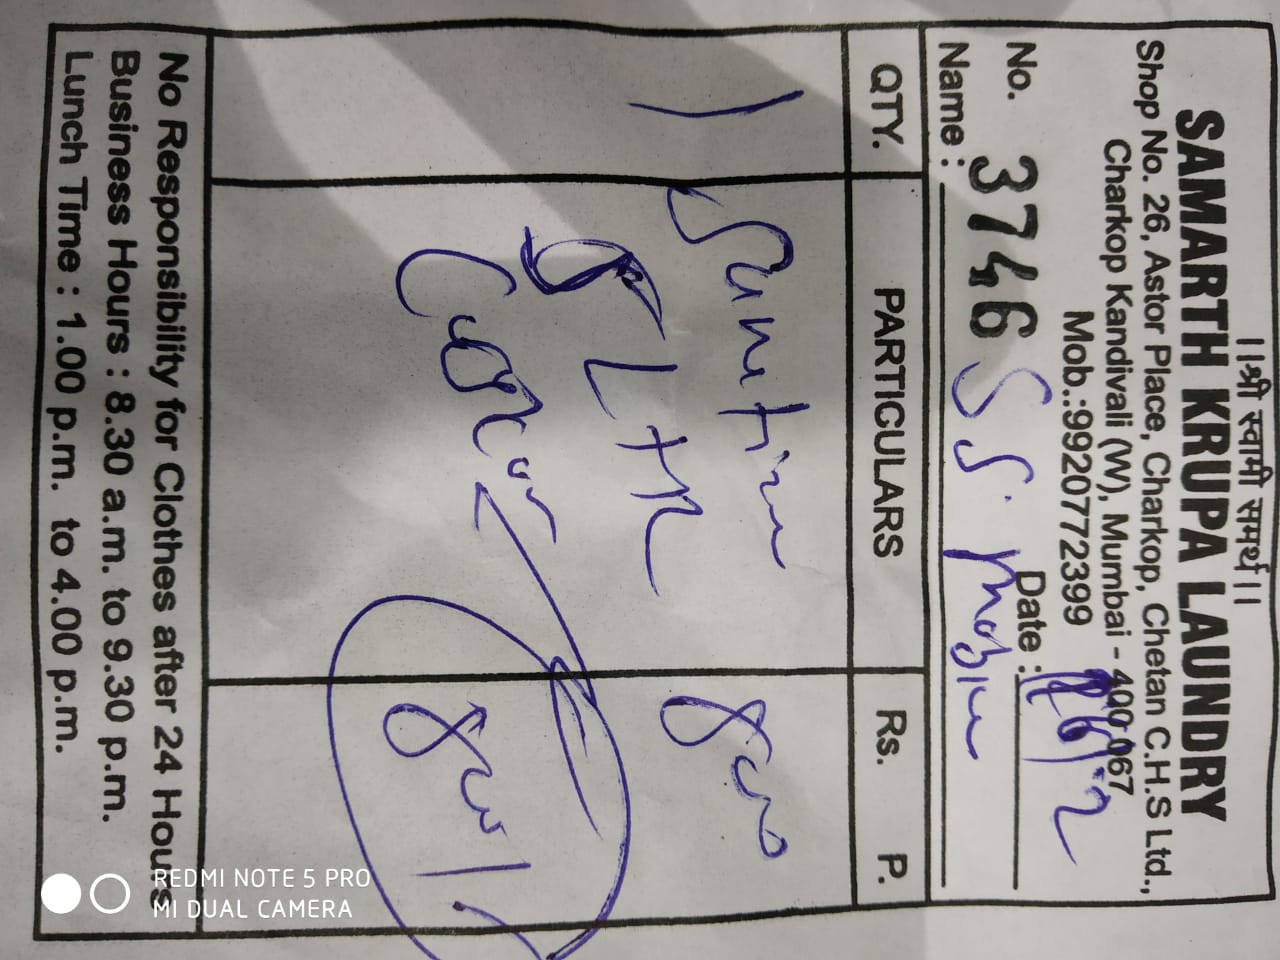 ।।श्री स्वामी समर्थ।।
SAMARTH KRUPA LAUNDRY
Shop No. 26, Astor Place, Charkop, Chetan C.H.S Ltd.,
Charkop Kandivali (W), Mumbai - 400 067
Mob.:9920772399
No. 3746 Date :
Name : S S.
QTY. PARTICULARS Rs. P.
1 800
5 Ltr
800/-
No Responsibility for Clothes after 24 Hours
Business Hours : 8.30 a.m. to 9.30 p.m.
Lunch Time : 1.00 p.m. to 4.00 p.m.
REDMI NOTE 5 PRO
MI DUAL CAMERA